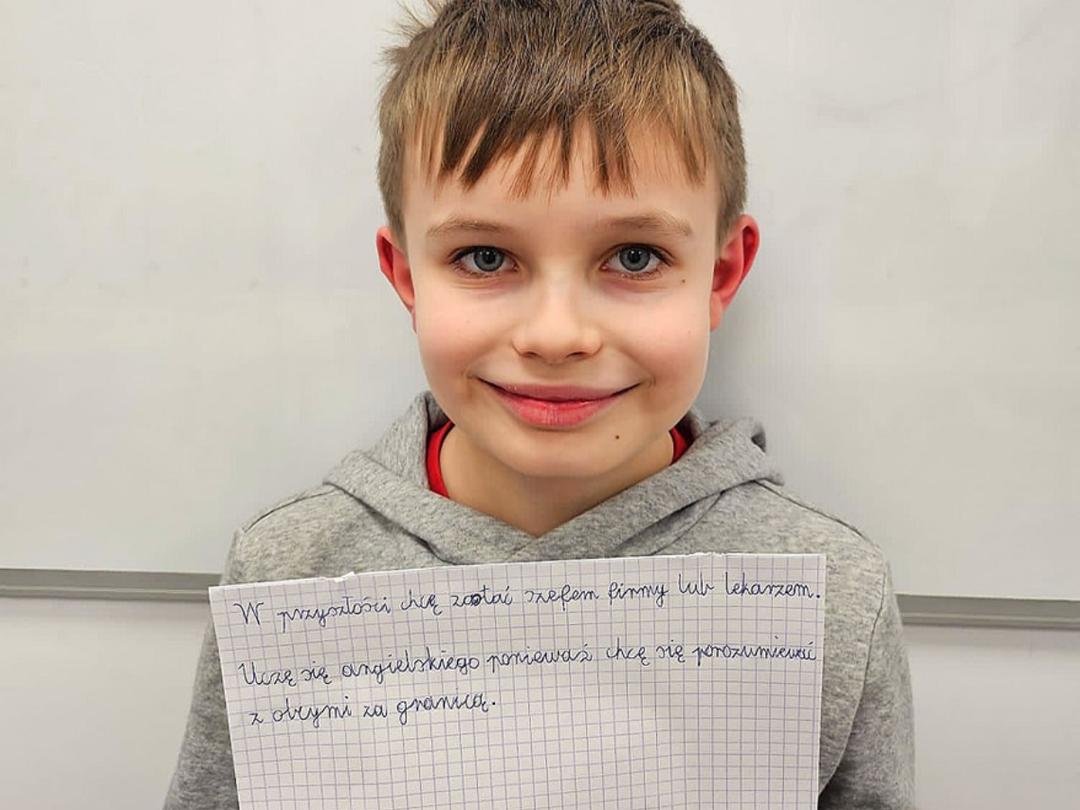 W przyszłości chcę zostać szefem firmy lub lekarzem.
Uczę się angielskiego ponieważ chcę się porozumiewać
z obcymi za granicą.